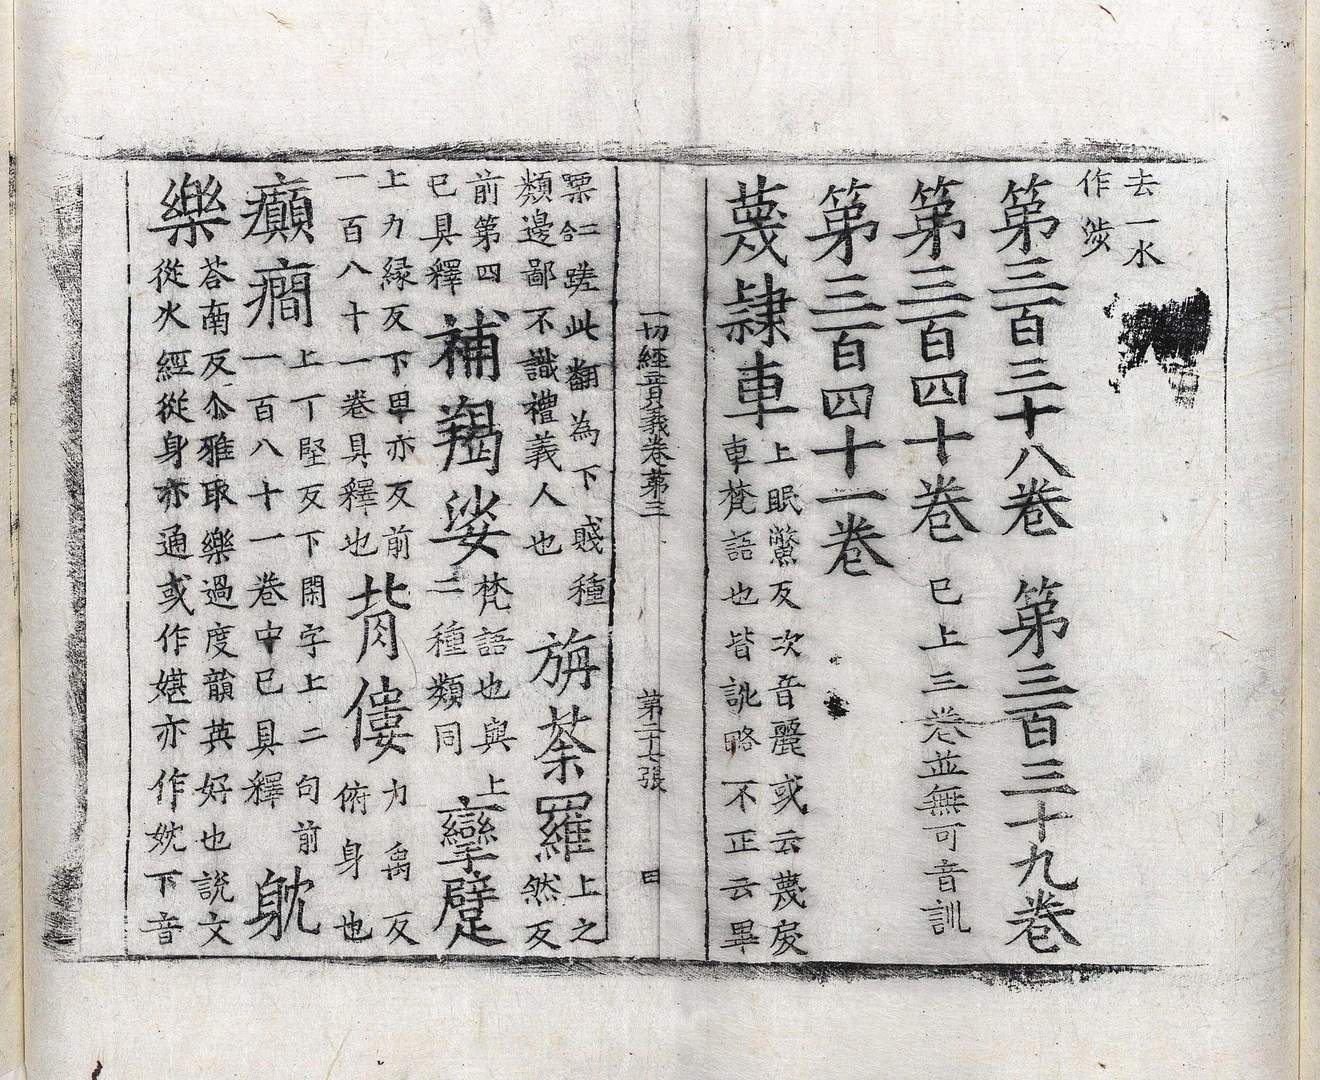 去一水
作渉
第三百三十八卷 第三百三十九卷
第三百四十卷 已上三卷並無可音訓
第三百四十一卷
蔑隷車 上眠鱉反次音麗或云蔑戾
車梵語也皆訛略不正云畢
一切經音義卷第三 第二十七張 日
栗二合蹉此翻為下賤種
類邊鄙不識禮義人也
旃荼羅 上之然反
前第四
已具釋
補羯娑 梵語也與上
二種類同
攣躄
上力緣反下卑亦反前
一百八十一卷具釋也
背僂 力禹反
俯身也
癲癎 上丁堅反下閑字上二句前
一百八十一卷中已具釋
躭
樂 荅南反尒雅耽樂過度韻英好也說文
從火經從身亦通或作媅亦作妉下音